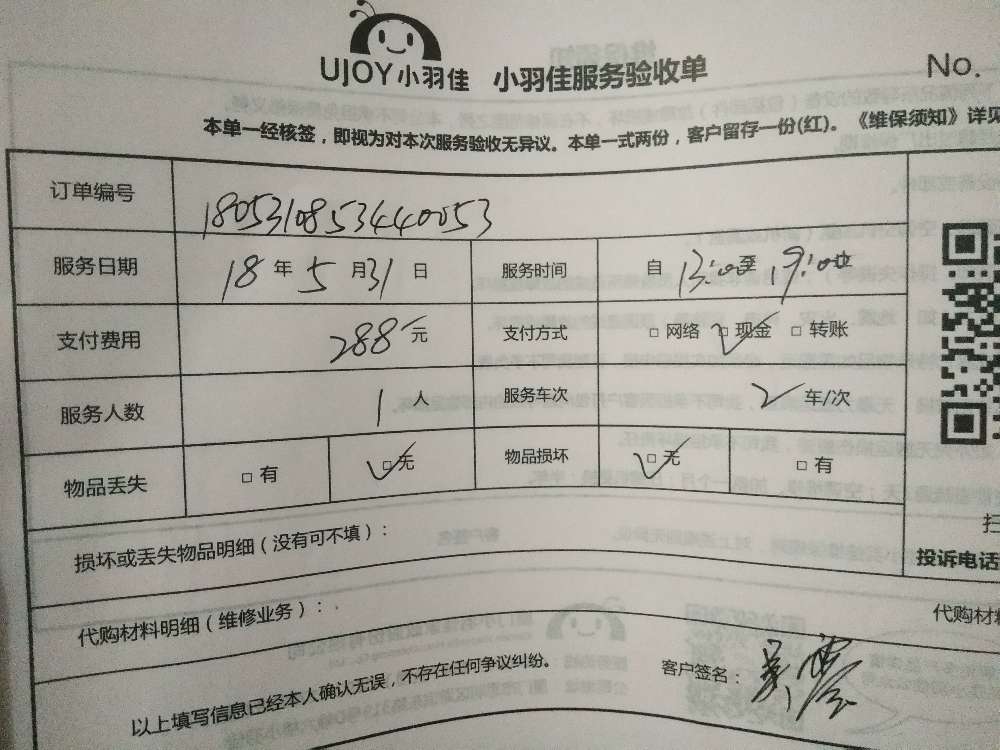 UJOY小羽佳 小羽佳服务验收单 No.
本单一经核签，即视为对本次服务验收无异议。本单一式两份，客户留存一份(红)。《维保须知》详见
订单编号 1805310853440053
服务日期 18年5月31日 服务时间 自13:00至19:00止
支付费用 288元 支付方式 □网络 □现金 □转账
服务人数 1人 服务车次 2车/次
物品丢失 □有 □无 物品损坏 □无 □有
损坏或丢失物品明细（没有可不填）：
投诉电话
代购材料明细（维修业务）：
代购材料
以上填写信息已经本人确认无误，不存在任何争议纠纷。 客户签名：